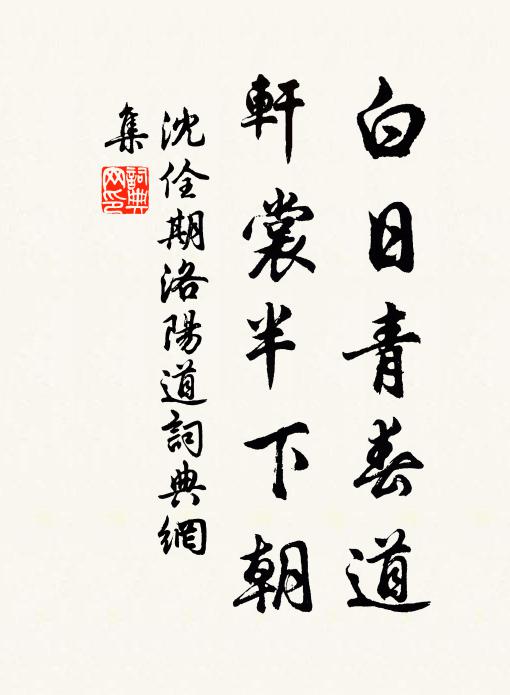 白日青春道
軒裳半下朝
沈佺期洛陽道詞典網
集
詞典
网印